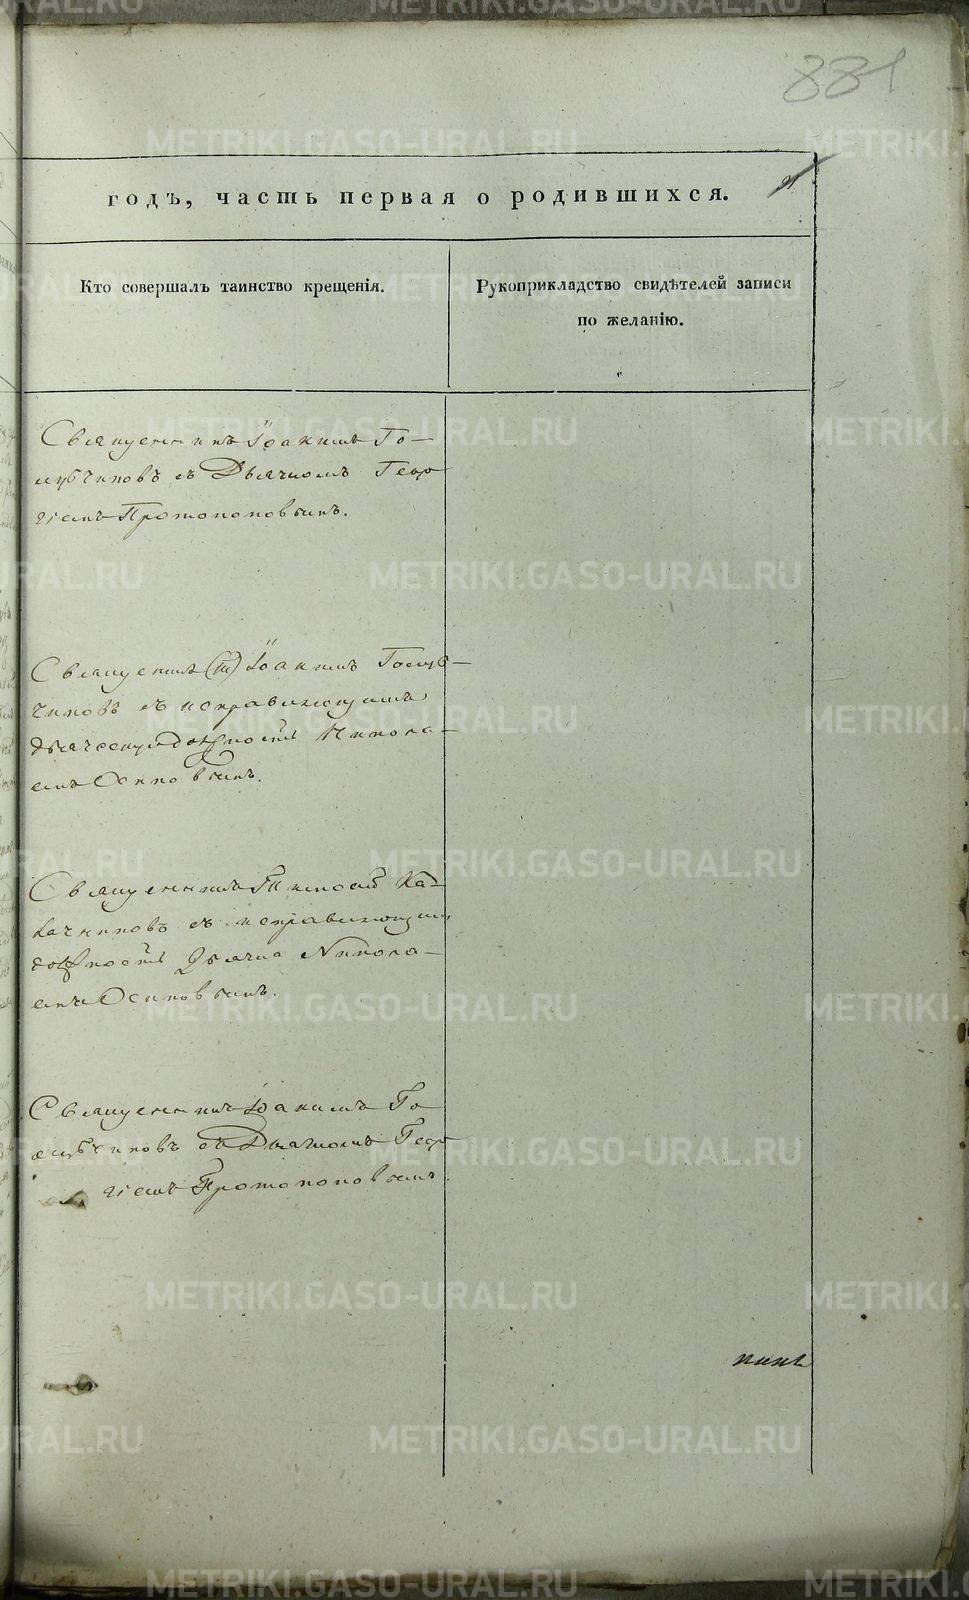 881
годъ, часть первая о родившихся.
Кто совершалъ таинство крещенія.
Рукоприкладство свидѣтелей записи
по желанію.
Священникъ Іоакимъ Го-
лубчиковъ съ Дьячкомъ Геор
гіемъ Протопоповымъ.
Священникъ Іоакимъ Голуб-
чиковъ съ исправляющимъ
дьяческую должность Никола-
емъ Осиповымъ.
Священникъ Тимофей Ка-
лачниковъ съ исправляющимъ
должность Дьячка Никола-
емъ Осиповымъ.
Священникъ Іоакимъ Го
лубчиковъ съ Дьячкомъ Геор
гіемъ Протопоповымъ.
METRIKI.GASO-URAL.RU